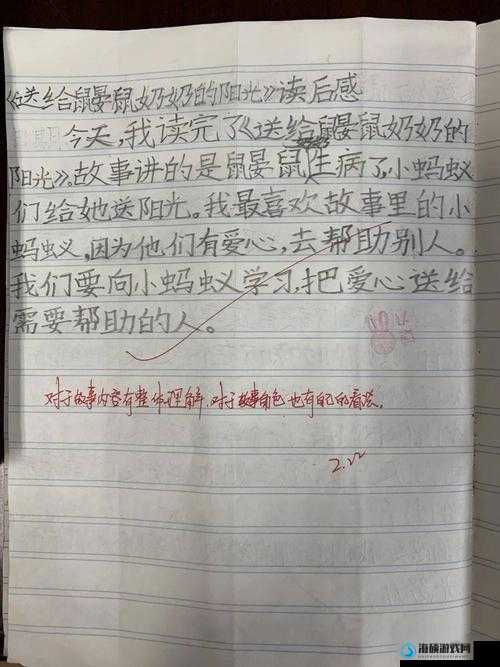 《送给鼹鼠奶奶的阳光》读后感
今天,我读完了《送给鼹鼠奶奶的
阳光》。故事讲的是鼹鼠奶奶生病了,小蚂蚁
们给她送阳光。我最喜欢故事里的小
蚂蚁,因为他们有爱心,去帮助别人。
我们要向小蚂蚁学习,把爱心送给
需要帮助的人。
对于故事内容有整体理解,对于故事角色也有自己的看法。
2.22
海硕游戏网